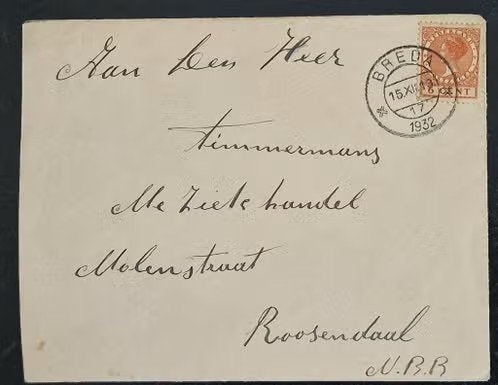 Aan den Heer
Timmermans
Muziekhandel
Molenstraat
Roosendaal
N.B.B
BREDA
15.XII.13
17
1932
6 CENT